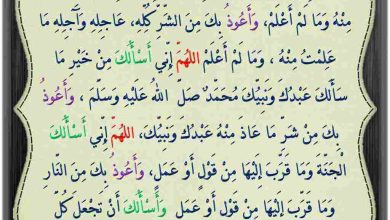 مِنْهُ وَمَا لَمْ أَعْلَمْ، وَأَعُوذُ بِكَ مِنَ الشَّرِّ كُلِّهِ، عَاجِلِهِ وَآجِلِهِ مَا
عَلِمْتُ مِنْهُ ، وَمَا لَمْ أَعْلَمْ اللهُمَّ إِنِّي أَسْأَلُكَ مِنْ خَيْرِ مَا
سَأَلَكَ عَبْدُكَ وَنَبِيُّكَ مُحَمَّدٌ صَلَ اللهُ عَلَيْهِ وَسَلَّمَ ، وَأَعُوذُ
بِكَ مِنْ شَرِّ مَا عَاذَ مِنْهُ عَبْدُكَ وَنَبِيُّكَ، اللهُمَّ إِنِّي أَسْأَلُكَ
الْجَنَّةَ وَمَا قَرَّبَ إِلَيْهَا مِنْ قَوْلٍ أَوْ عَمَلٍ، وَأَعُوذُ بِكَ مِنَ النَّارِ
وَمَا قَرَّبَ إِلَيْهَا مِنْ قَوْلٍ أَوْ عَمَلٍ وَأَسْأَلُكَ أَنْ تَجْعَلَ كُلَّ